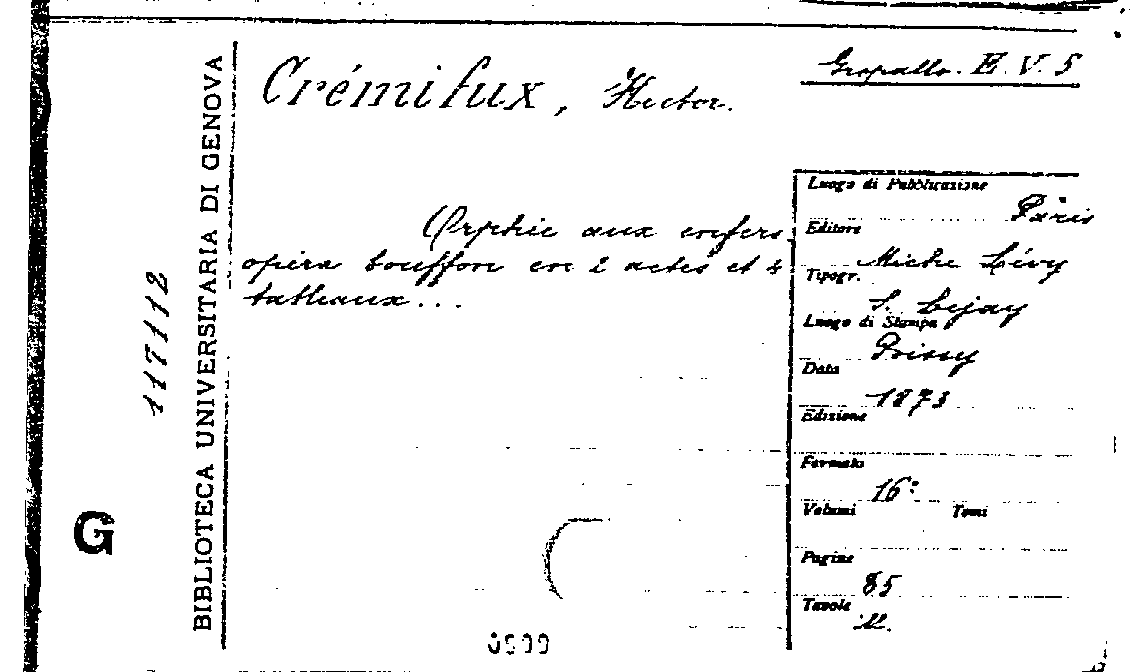 Crémifux, Hector.
Gropallo. E. V. 5
BIBLIOTECA UNIVERSITARIA DI GENOVA
117112
G
Orphée aux enfers
opéra bouffon en 2 actes et 4
tableaux...
Luogo di Pubblicazione
Paris
Editore
Miche Lévy
Tipogr.
S. Lejay
Luogo di Stampa
Poissy
Data
1873
Edizione
Formato
16°
Volumi Tomi
Pagine
85
Tavole
ill.